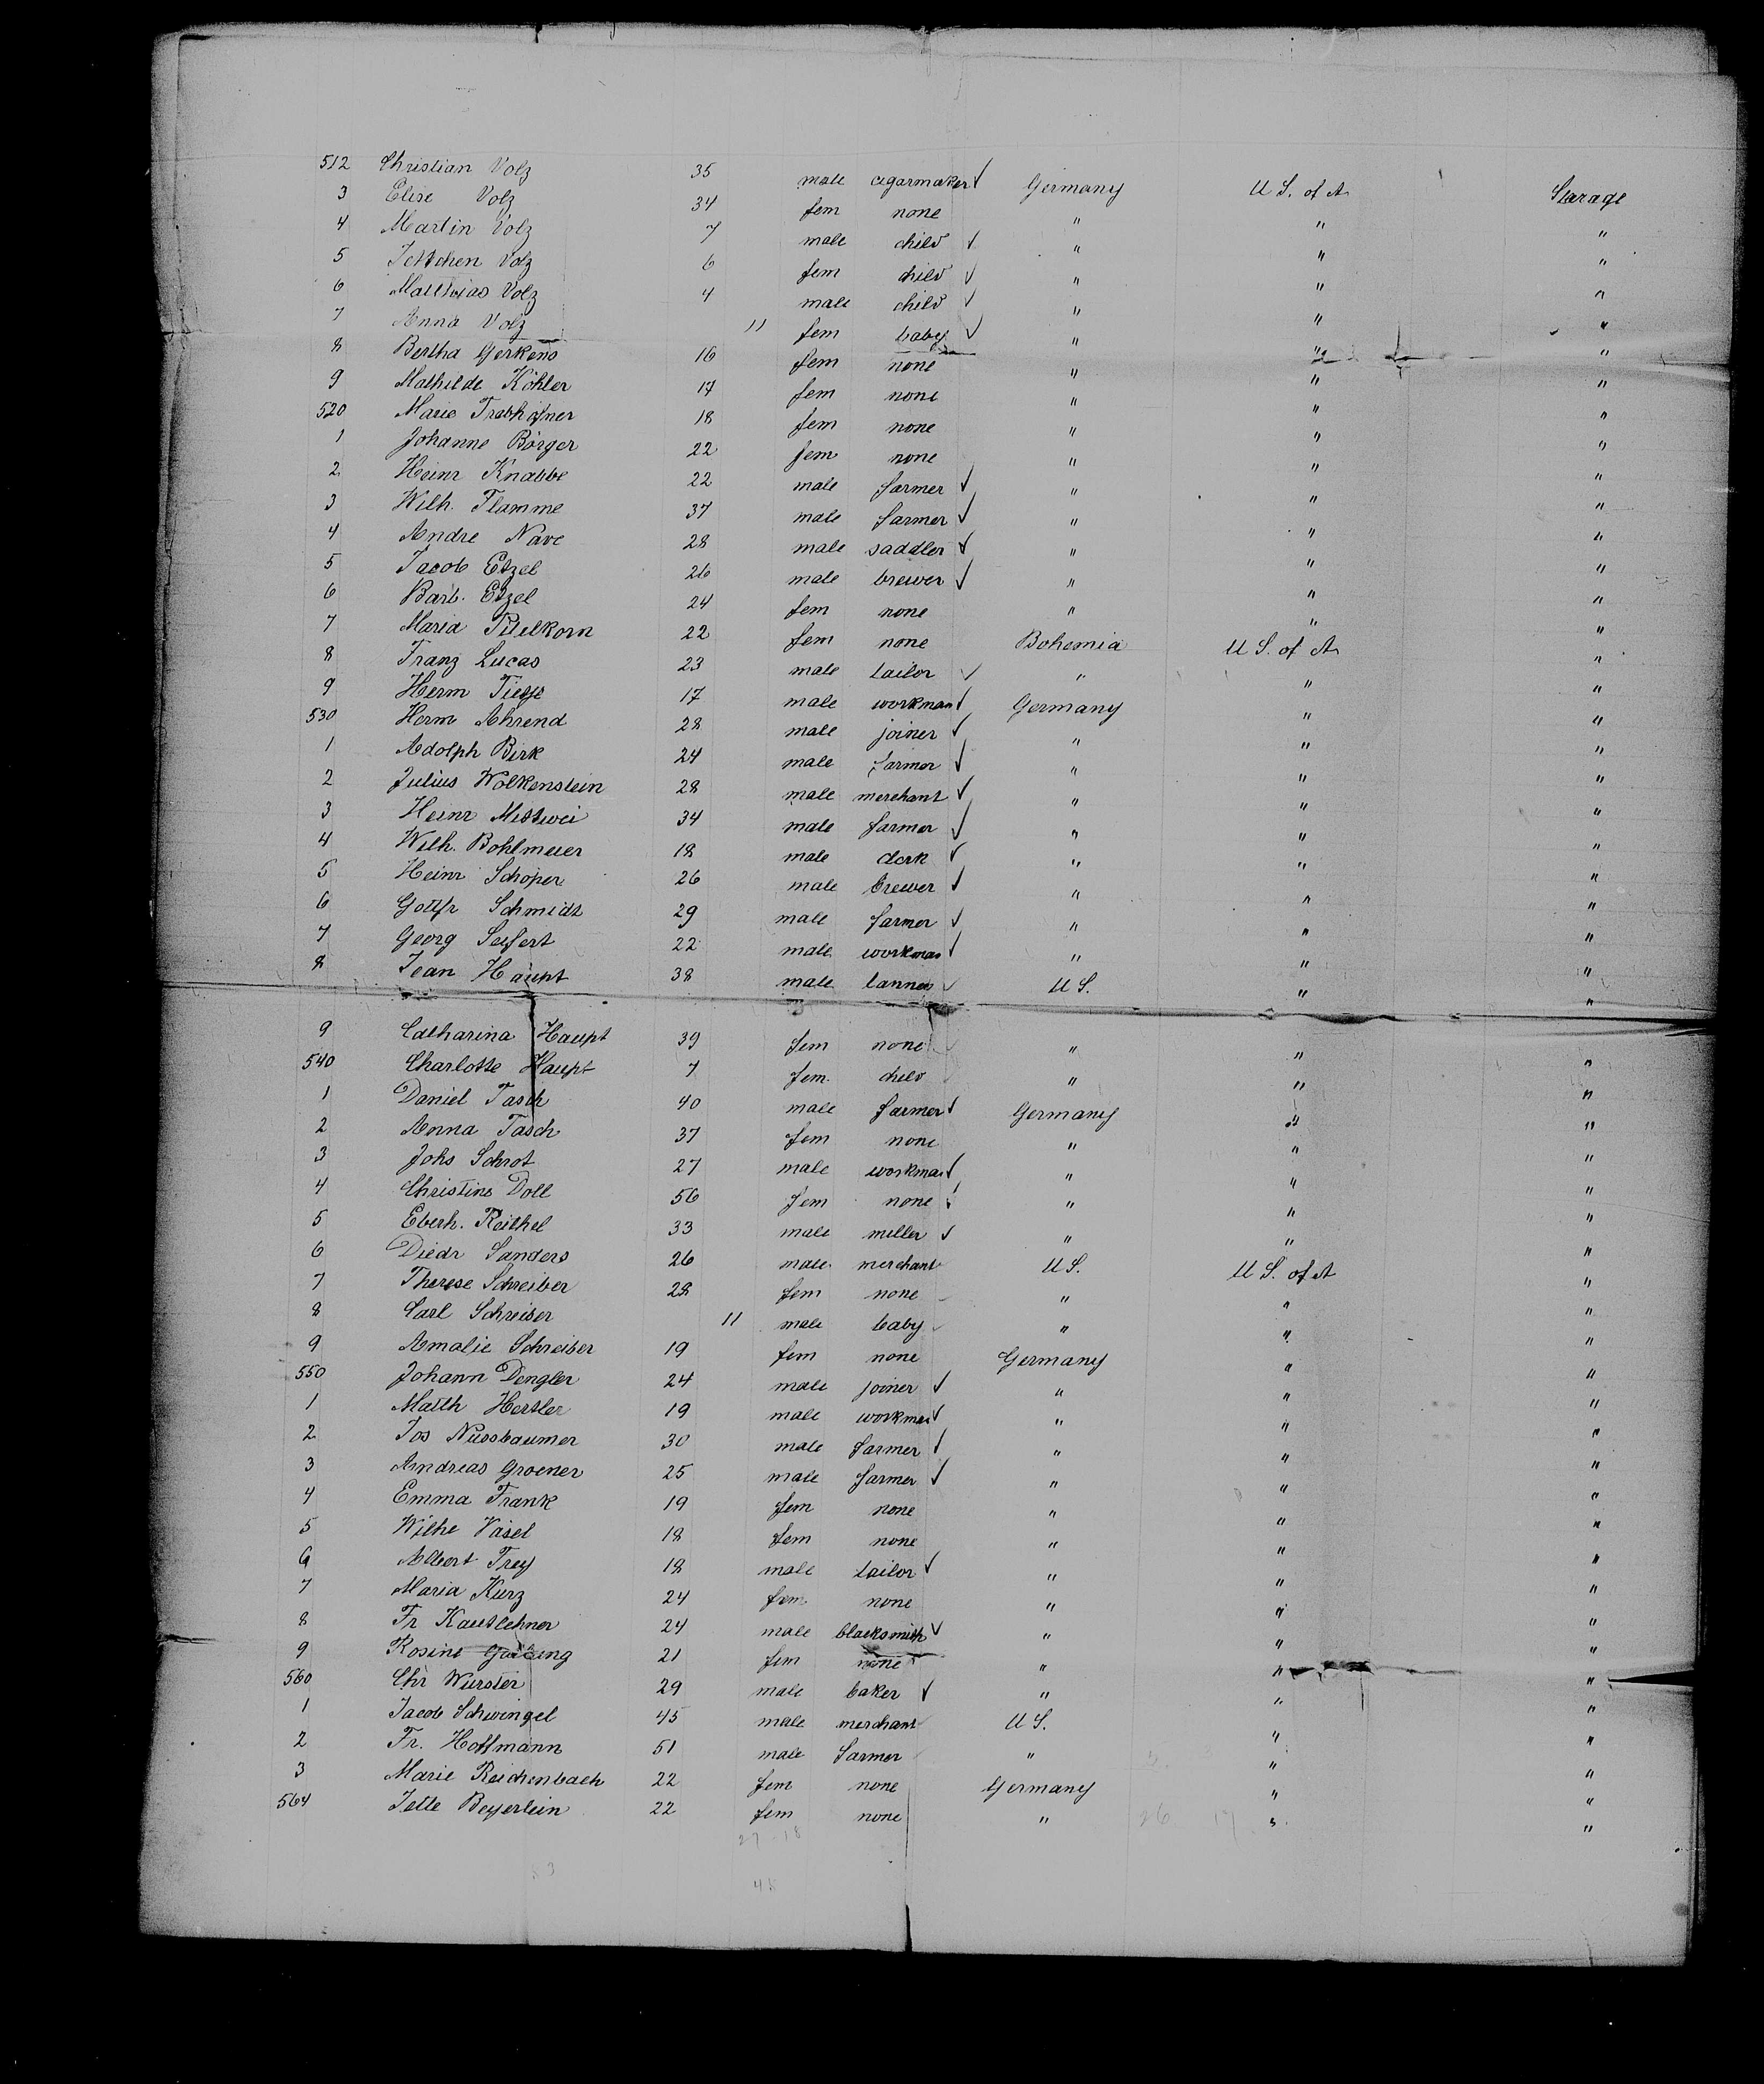 512 Christian Volz 35 male cigarmaker ✓ Germany U S. of A. Starage
3 Elise Volz 34 fem none " " "
4 Martin Volz 7 male child ✓ " " "
5 Jettchen Volz 6 fem child ✓ " " "
6 Matthias Volz 4 male child ✓ " " "
7 Anna Volz 11 fem baby ✓ " " "
8 Bertha Gerkens 16 fem none " " "
9 Mathilde Köhler 17 fem none " " "
520 Marie 18 fem none " " "
1 Johanne Börger 22 fem none " " "
2 Heinr Knabbe 22 male farmer ✓ " " "
3 Wilh. Flamme 37 male farmer ✓ " " "
4 Andre Nave 28 male saddler ✓ " " "
5 Jacob Etzel 26 male brewer ✓ " " "
6 Barb. Etzel 24 fem none " " "
7 Maria Pitelkorn 22 fem none Bohemia U S. of A. "
8 Franz Lucas 23 male tailor ✓ " " "
9 Herm 17 male workman ✓ Germany " "
530 Herm Ahrend 28 male joiner ✓ " " "
1 Adolph Berk 24 male farmer ✓ " " "
2 Julius Wolkenstein 28 male merchant ✓ " " "
3 Heinr 34 male farmer ✓ " " "
4 Wilh. Bohlmeier 18 male clerk ✓ " " "
5 Heinr Schöper 26 male brewer ✓ " " "
6 Gottfr Schmidt 29 male farmer ✓ " " "
7 Georg Seifert 22 male workman ✓ " " "
8 Jean Haupt 38 male tanner ✓ U S. " "
9 Catharina Haupt 39 fem none ✓ " " "
540 Charlotte Haupt 7 fem. child ✓ " " "
1 Daniel Tasch 40 male farmer ✓ Germany " "
2 Anna Tasch 37 fem none " " "
3 Johs Schrot 27 male workman ✓ " " "
4 Christine Doll 56 fem none ✓ " " "
5 Eberh. Reithel 33 male miller ✓ " " "
6 Diedr Sanders 26 male merchant U S. U S. of A "
7 Therese Schreiber 28 fem none " " "
8 Carl Schreiber 11 male baby ✓ " " "
9 Amalie Schreiber 19 fem none Germany " "
550 Johann Dengler 24 male joiner ✓ " " "
1 Matth Hertler 19 male workman ✓ " " "
2 Jos Nussbaumer 30 male farmer ✓ " " "
3 Andreas Groener 25 male farmer ✓ " " "
4 Emma Frank 19 fem none " " "
5 Wilhe Väsel 18 fem none " " "
6 Albert Frey 18 male tailor ✓ " " "
7 Maria Kurz 24 fem none " " "
8 Fr Kautlehner 24 male blacksmith ✓ " " "
9 Rosine 21 fem none " " "
560 Chr Wurster 29 male baker ✓ " " "
1 Jacob Schwingel 45 male merchant U S. " "
2 Fr. Hoffmann 51 male farmer ✓ " " "
3 Marie Reichenbach 22 fem none Germany " "
564 Jette Beyerlein 22 fem none " 26 17 " "
27 - 18